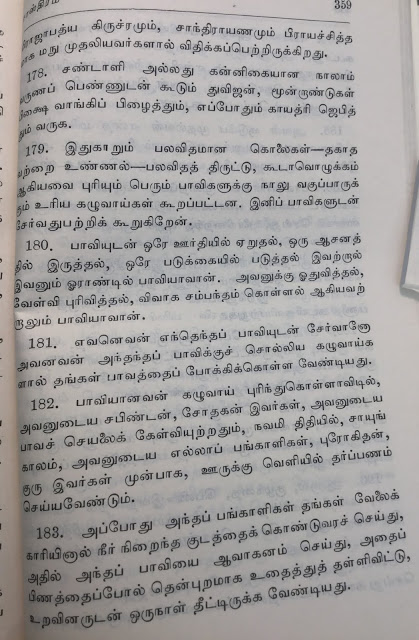 359
ராஜாபத்ய கிருச்ரமும், சாந்திராயணமும் பிராயச்சித்த
மாக மநு முதலியவர்களால் விதிக்கப்பெற்றிருக்கிறது.
178. சண்டாளி அல்லது கன்னிகையான நாலாம்
வருணப் பெண்ணுடன் கூடும் துவிஜன், மூன்றாண்டுகள்
பிக்ஷை வாங்கிப் பிழைத்தும், எப்போதும் காயத்ரி ஜெபித்
தும் வருக.
179. இதுகாறும் பலவிதமான கொலைகள்—தகாத
வற்றை உண்ணல்—பலவிதத் திருட்டு, கூடாவொழுக்கம்
ஆகியவை புரியும் பெரும் பாவிகளுக்கு நாலு வகுப்பாருக்
கும் உரிய கழுவாய்கள் கூறப்பட்டன. இனிப் பாவிகளுடன்
சேர்வதுபற்றிக் கூறுகிறேன்.
180. பாவியுடன் ஒரே ஊர்தியில் ஏறுதல், ஒரு ஆசனத்
தில் இருத்தல், ஒரே படுக்கையில் படுத்தல் இவற்றால்
இவனும் ஓராண்டில் பாவியாவான். அவனுக்கு ஓதுவித்தல்,
வேள்வி புரிவித்தல், விவாக சம்பந்தம் கொள்ளல் ஆகியவற்
றாலும் பாவியாவான்.
181. எவனெவன் எந்தெந்தப் பாவியுடன் சேர்வானோ
அவனவன் அந்தந்தப் பாவிக்குச் சொல்லிய கழுவாய்க
ளால் தங்கள் பாவத்தைப் போக்கிக்கொள்ள வேண்டியது.
182. பாவியானவன் கழுவாய் புரிந்துகொள்ளாவிடில்,
அவனுடைய சபிண்டன், சோதகன் இவர்கள், அவனுடைய
பாவச் செயலைக் கேள்வியுற்றதும், நவமி திதியில், சாயுங்
காலம், அவனுடைய எல்லாப் பங்காளிகள், புரோகிதன்,
குரு இவர்கள் முன்பாக, ஊருக்கு வெளியில் தர்ப்பணம்
செய்யவேண்டும்.
183. அப்போது அந்தப் பங்காளிகள் தங்கள் வேலைக்
காரியினால் நீர் நிறைந்த குடத்தைக் கொண்டுவரச் செய்து,
அதில் அந்தப் பாவியை ஆவாகனம் செய்து, அதைப்
பிணத்தைப்போல் தென்புறமாக உதைத்துத் தள்ளிவிட்டு,
உறவினருடன் ஒருநாள் தீட்டிருக்க வேண்டியது.